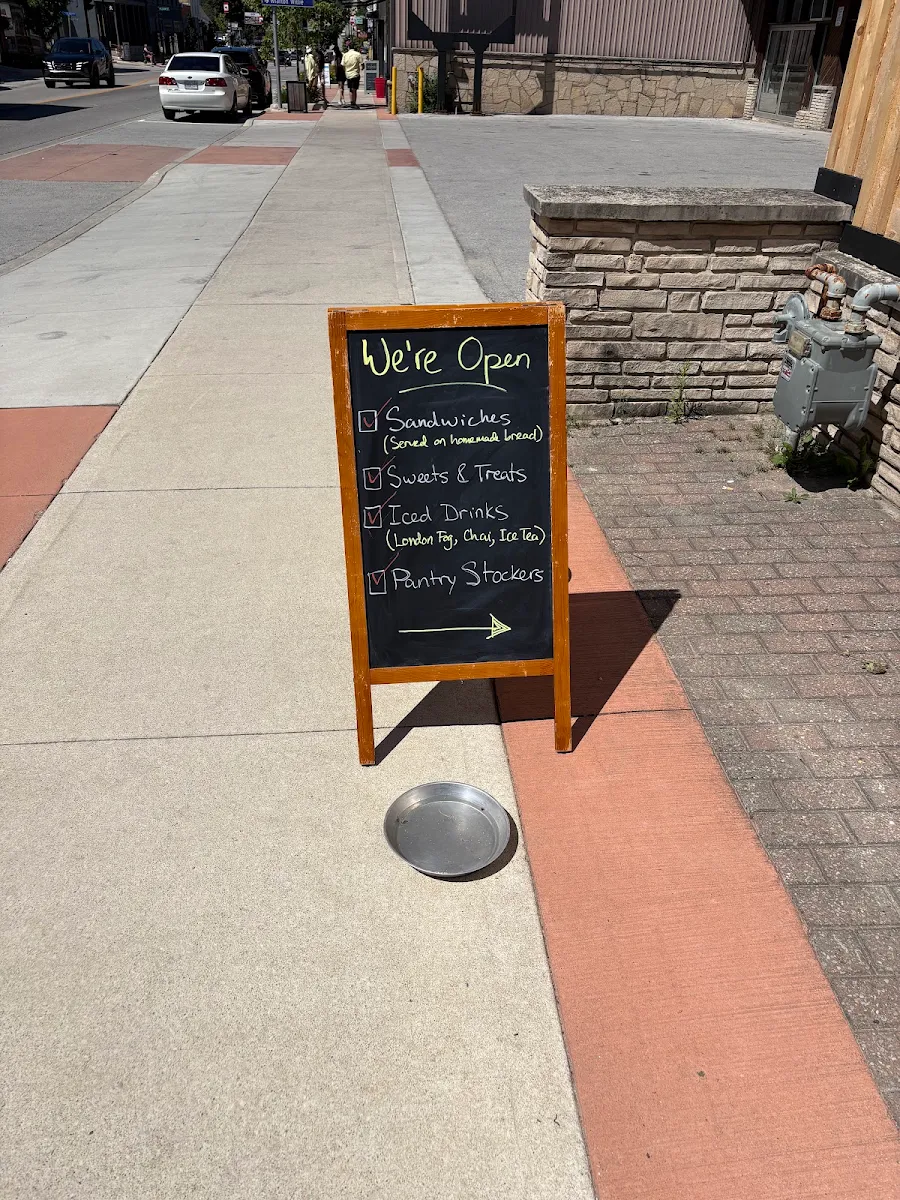 We're Open
Sandwiches
(Served on homemade bread)
Sweets & Treats
Iced Drinks
(London Fog, Chai, Ice Tea)
Pantry Stockers